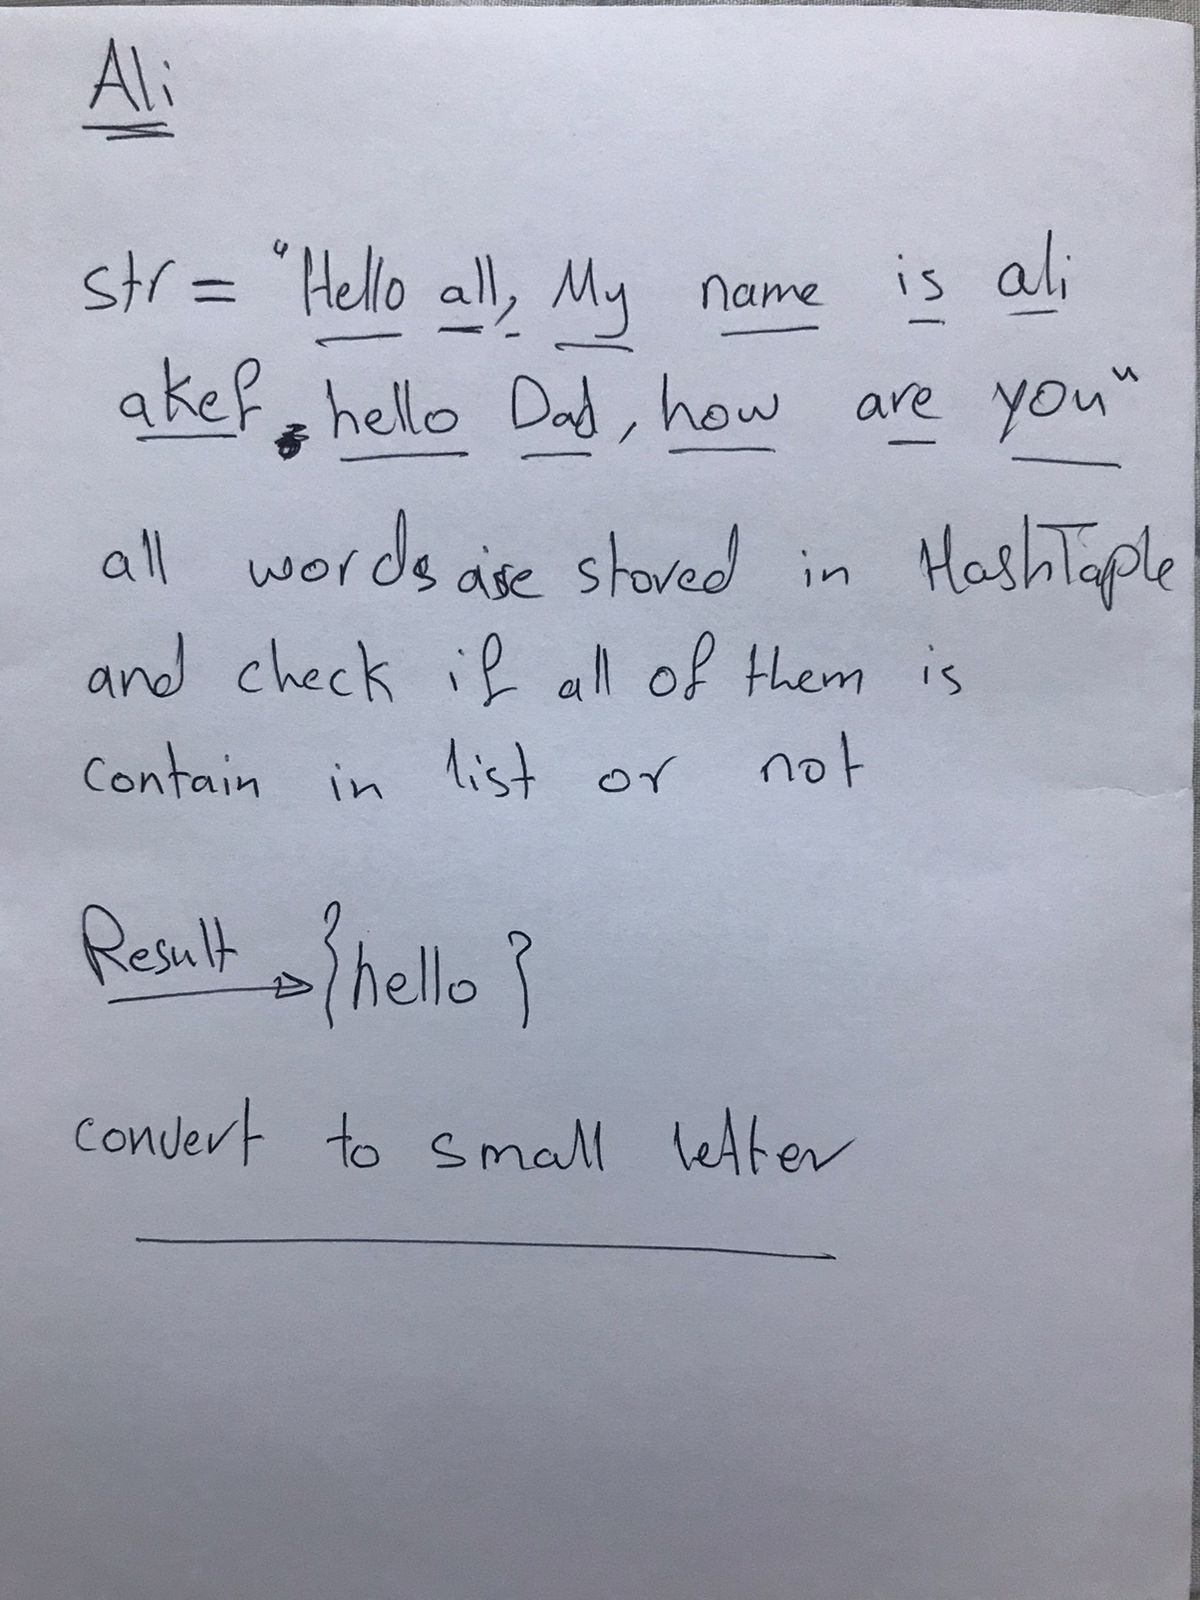 Ali
str = "Hello all, My name is ali
akef. hello Dad, how are you"
all words are stored in HashTaple
and check if all of them is
contain in list or not
Result → {hello}
convert to small letter